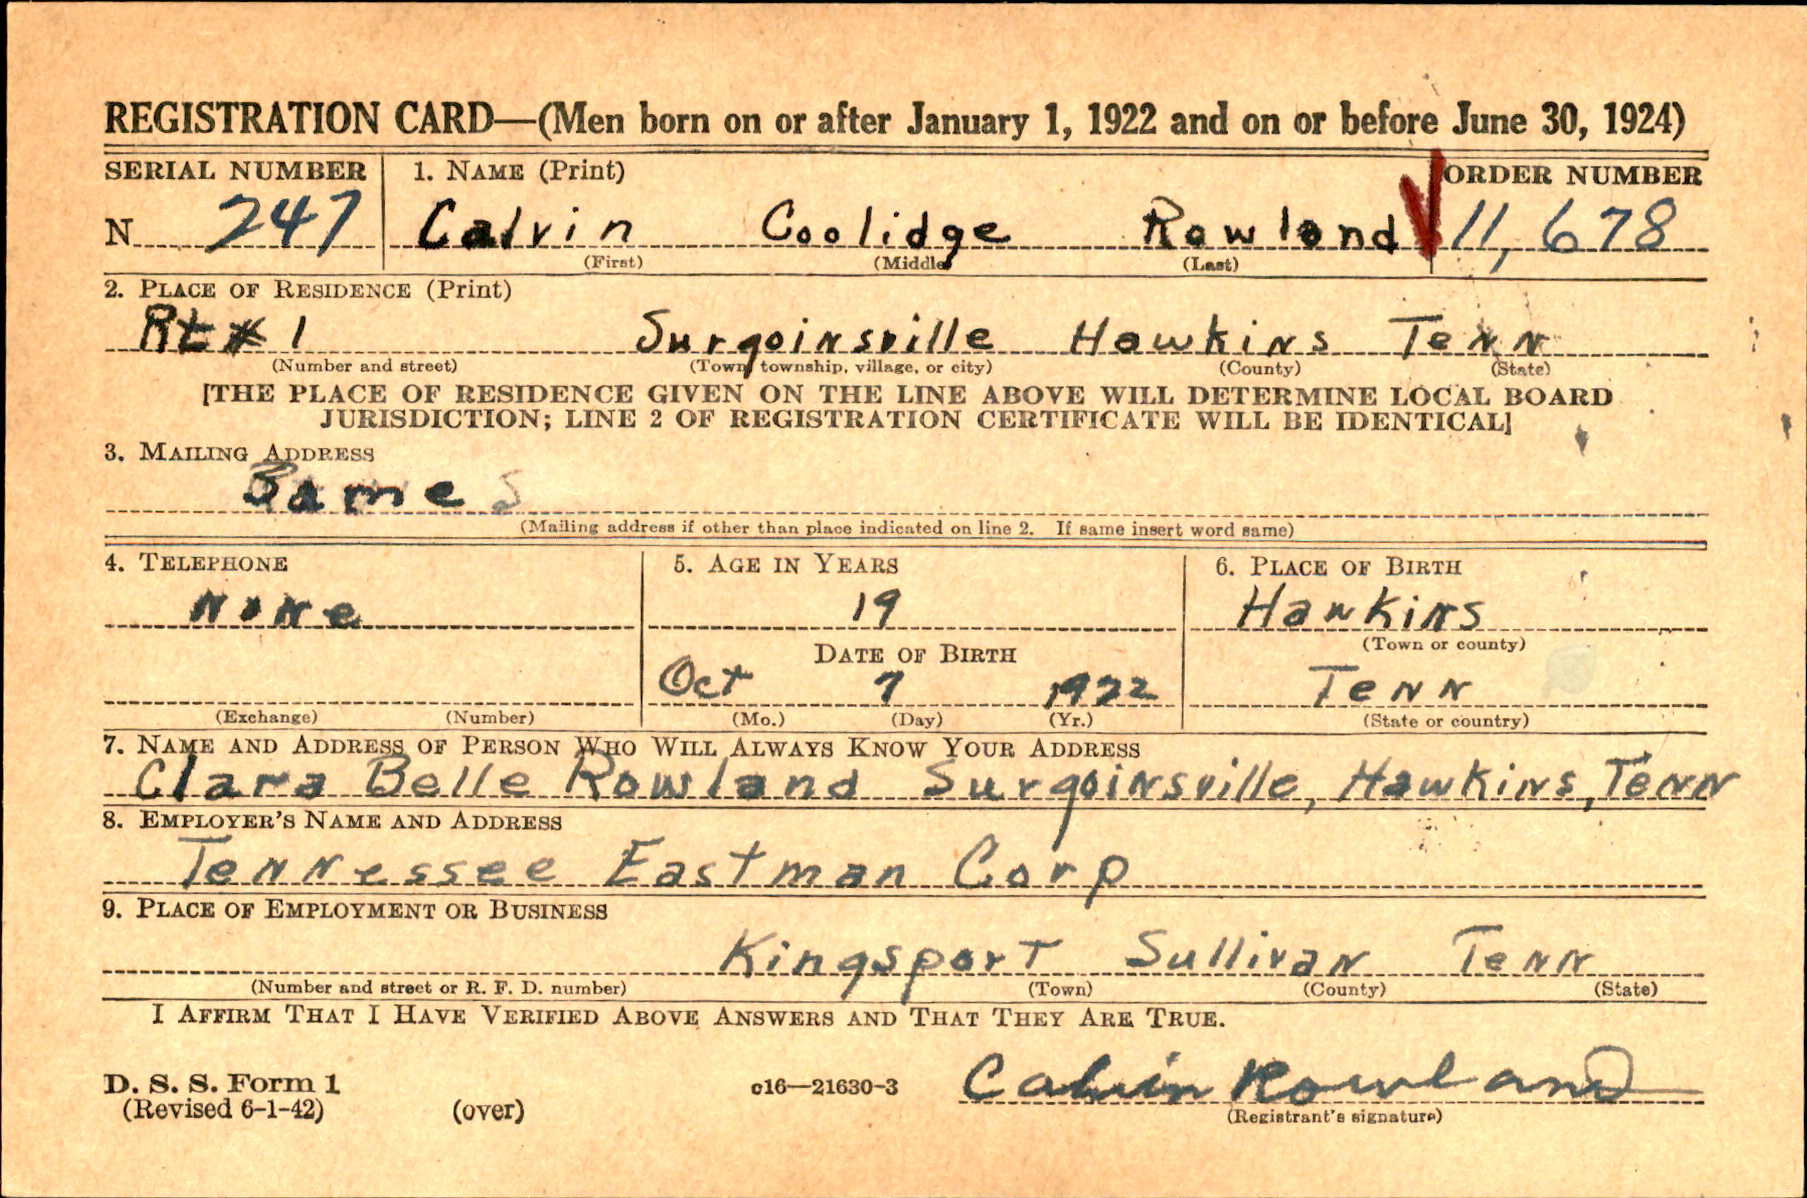 REGISTRATION CARD—(Men born on or after January 1, 1922 and on or before June 30, 1924)
SERIAL NUMBER 1. NAME (Print) ORDER NUMBER
N 247 Calvin Coolidge Rowland 11,678
(First) (Middle) (Last)
2. PLACE OF RESIDENCE (Print)
Rt # 1 Surgoinsville Hawkins Tenn
(Number and street) (Town, township, village, or city) (County) (State)
[THE PLACE OF RESIDENCE GIVEN ON THE LINE ABOVE WILL DETERMINE LOCAL BOARD
JURISDICTION; LINE 2 OF REGISTRATION CERTIFICATE WILL BE IDENTICAL]
3. MAILING ADDRESS
Same
(Mailing address if other than place indicated on line 2. If same insert word same)
4. TELEPHONE 5. AGE IN YEARS 6. PLACE OF BIRTH
None 19 Hawkins
(Town or county)
DATE OF BIRTH
Oct 7 1922 Tenn
(Exchange) (Number) (Mo.) (Day) (Yr.) (State or country)
7. NAME AND ADDRESS OF PERSON WHO WILL ALWAYS KNOW YOUR ADDRESS
Clara Belle Rowland Surgoinsville, Hawkins, Tenn
8. EMPLOYER'S NAME AND ADDRESS
Tennessee Eastman Corp
9. PLACE OF EMPLOYMENT OR BUSINESS
Kingsport Sullivan Tenn
(Number and street or R. F. D. number) (Town) (County) (State)
I AFFIRM THAT I HAVE VERIFIED ABOVE ANSWERS AND THAT THEY ARE TRUE.
D. S. S. Form 1 c16—21630-3 Calvin Rowland
(Revised 6-1-42) (over) (Registrant's signature)